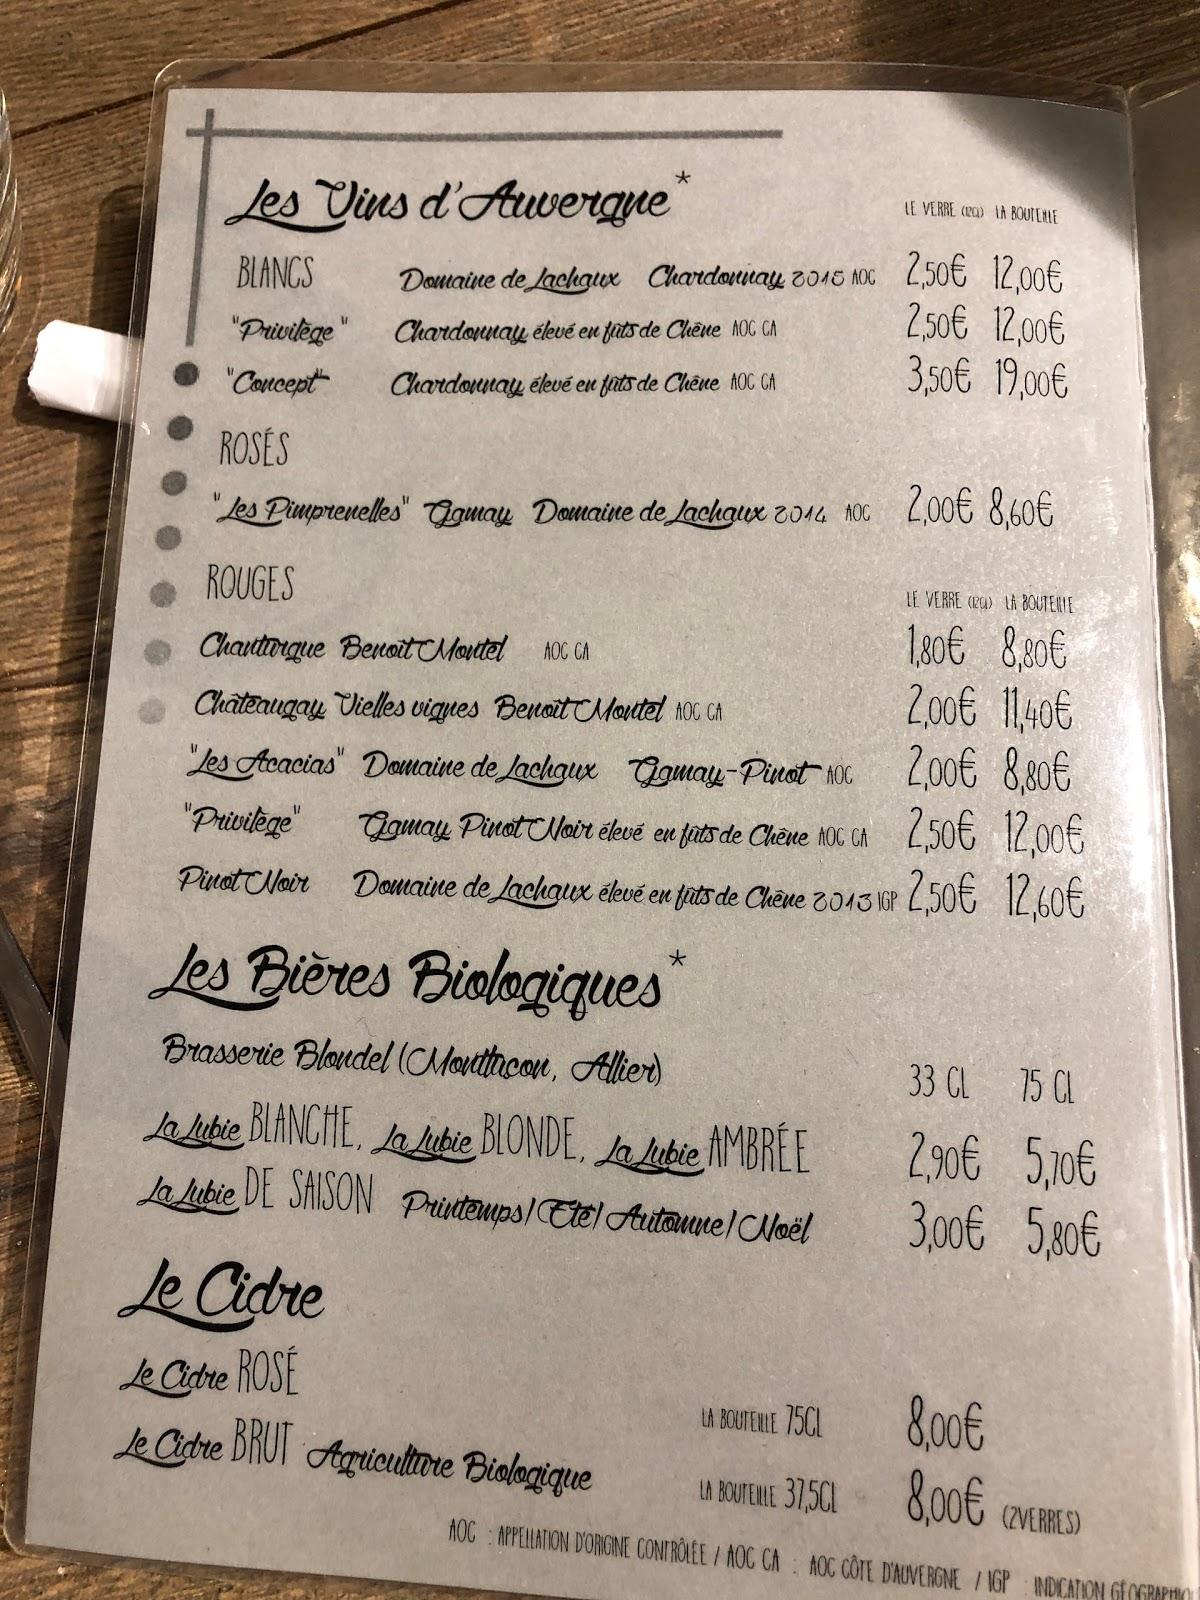 Les Vins d'Auvergne*
LE VERRE (12CL) LA BOUTEILLE
BLANCS Domaine de Lachaux Chardonnay 2015 AOC 2,50€ 12,00€
"Privilège" Chardonnay élevé en fûts de Chêne AOC CA 2,50€ 12,00€
"Concept" Chardonnay élevé en fûts de Chêne AOC CA 3,50€ 19,00€
ROSÉS
"Les Pimprenelles" Gamay Domaine de Lachaux 2014 AOC 2,00€ 8,60€
ROUGES
LE VERRE (12CL) LA BOUTEILLE
Chanturgue Benoît Montel AOC CA 1,80€ 8,80€
Châteaugay Vielles vignes Benoît Montel AOC CA 2,00€ 11,40€
"Les Acacias" Domaine de Lachaux Gamay-Pinot AOC 2,00€ 8,80€
"Privilège" Gamay Pinot Noir élevé en fûts de Chêne AOC CA 2,50€ 12,00€
Pinot Noir Domaine de Lachaux élevé en fûts de Chêne 2013 IGP 2,50€ 12,60€
Les Bières Biologiques*
Brasserie Blondel (Montluçon, Allier) 33 CL 75 CL
La Lubie BLANCHE, La Lubie BLONDE, La Lubie AMBRÉE 2,90€ 5,70€
La Lubie DE SAISON Printemps/Eté/Automne/Noël 3,00€ 5,80€
Le Cidre
Le Cidre ROSÉ LA BOUTEILLE 75CL 8,00€
Le Cidre BRUT Agriculture Biologique LA BOUTEILLE 37,5CL 8,00€ (2VERRES)
AOC : APPELLATION D'ORIGINE CONTRÔLÉE / AOC CA : AOC CÔTE D'AUVERGNE / IGP : INDICATION